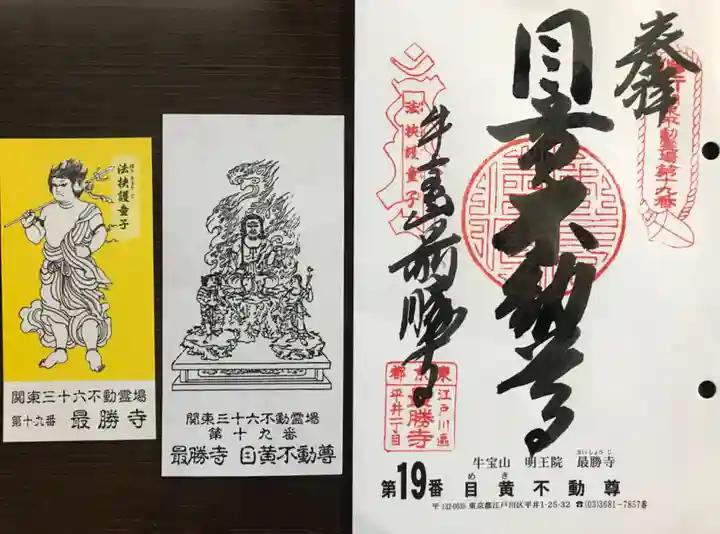 法挟護童子
関東三十六不動霊場
第十九番 最勝寺
関東三十六不動霊場
第十九番
最勝寺 目黄不動尊
奉拝
目黄不動尊
牛宝山最勝寺
法挟護童子
東京都
江戸川區
平井一丁目
最勝寺
さいしょうじ
牛宝山 明王院 最勝寺
めき
第19番 目黄不動尊
〒132-0035 東京都江戸川区平井1-25-32 ☎(03)3681-7857番